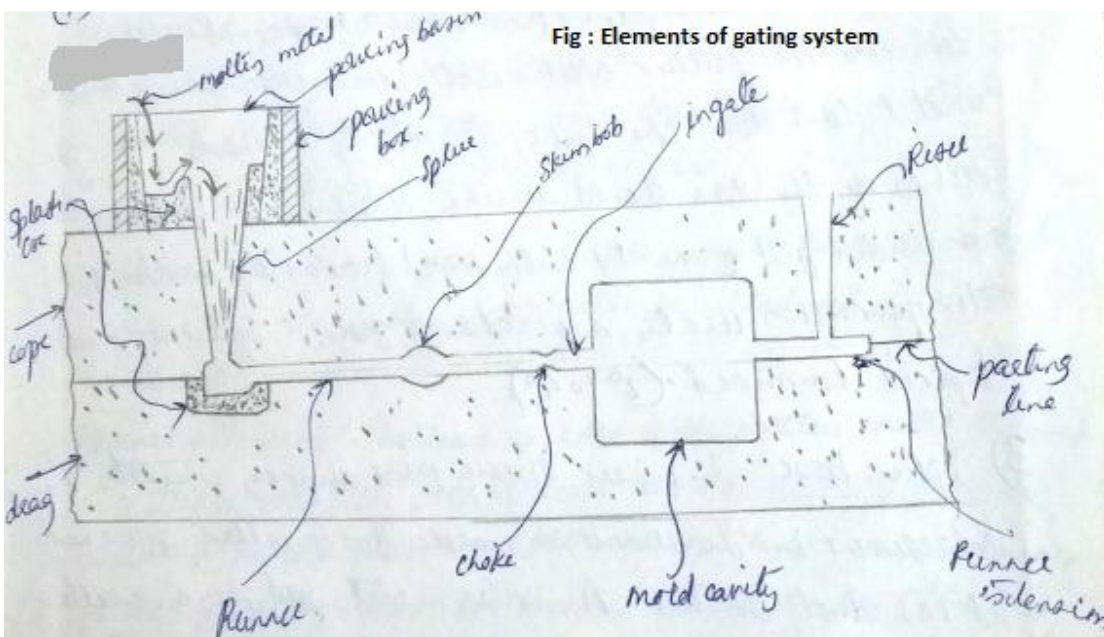 Fig : Elements of gating system
molten metal
pouring basin
pouring
box
sprue
skimbob
ingate
Riser
splash
core
cope
drag
parting
line
Runner
choke
mold cavity
Runner
extension